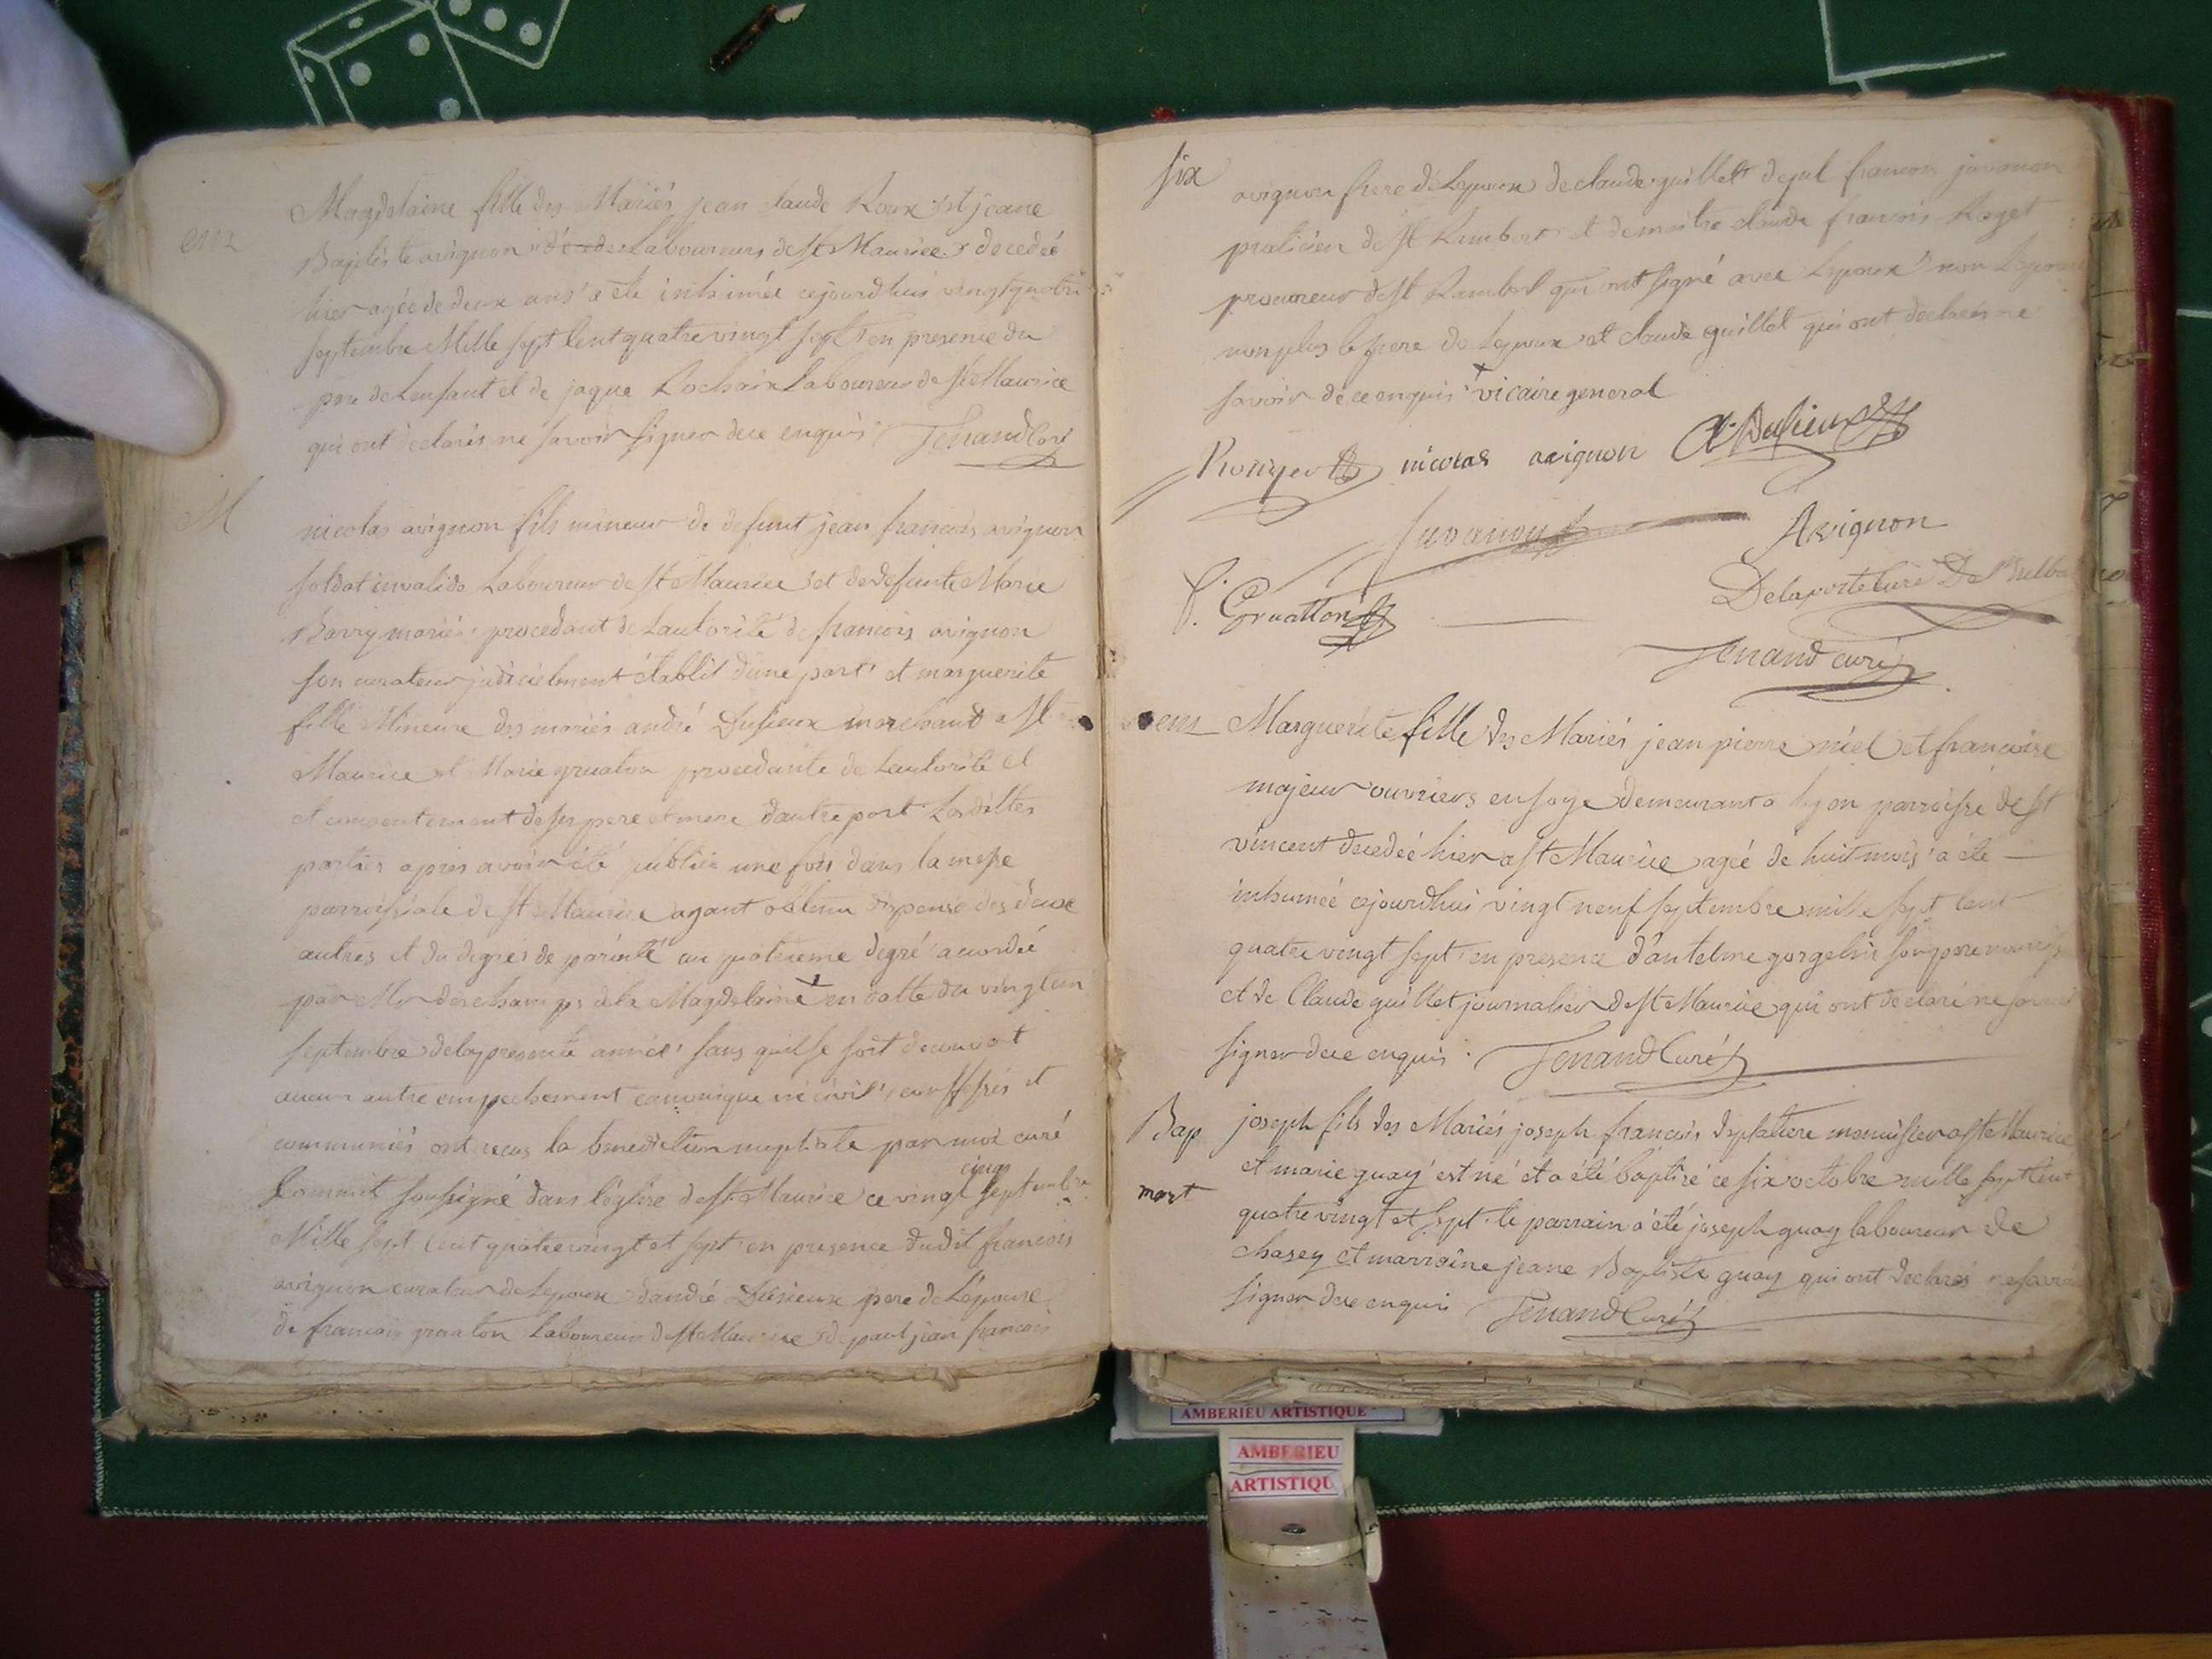 em
Magdelaine fille des Mariés jean claude Roux et jeane
Baptiste avignon laboureurs de St Maurice decedeé
hier ageé de deux ans a eté inhumée cejourdhui vingtquatre
septembre Mille sept Cent quatre vingt sept en presence du
pere de Lenfant et de jaque Rochaix Laboureur de St Maurice
qui ont declarés ne savoir signer de ce enquis Tenand Curé
M
nicolas avignon fils mineur de defunt jean francois avignon
soldat invalide Laboureur de St Maurice et de defunte Marie
Barry mariés procedant de Lautorité de francois avignon
son curateur judicielment établit dune part et marguerite
fille Mineure des mariés andré Dusieux marchand a St
Maurice et Marie gruaton procedante de Lautorité et
et consentement de ses pere et mere dautre part Lesdittes
parties apres avoir été publiés une fois dans la messe
parroissiale de St Maurice ayant obtenu dispense des deux
autres et du degrés de parenté au quatrieme degré acordeé
par Mr deschamps dela Magdelaine + en datte du vingt un
septembre de la presente année sans quil se soit decouvert
aucun autre empechement canonique ni civil, confessés et
communiés ont recus la benediction nuptiale par moi curé
Commit soussigné dans léglise de St Maurice ce vingt cinq septembre
Mille sept Cent quatre vingt et sept en presence dudit francois
avignon curateur de Lepoux dandré Dusieux pere de Lepouse
de francois gruaton Laboureur de St Maurice de paul jean francois
six
avignon frere de Lepoux de claude guillet de francois juvanon
praticien de St Rambert et de maitre claude francois Roget
procureur de St Rambert qui ont signé avec Lepoux non Lepouse
non plus le frere de Lepoux et claude guillet qui ont declarés ne
savoir de ce enquis + vicaire general
Rouger nicolas avignon A. Dusieux
Juvanon Avignon
f. Gruatton Delaporte Curé De
Tenand curé
em
Marguerite fille des Mariés jean pierre niel et francoise
majeur ouvriers en soye demeurant a lyon parroisse de St
vincent decedeé hier a St Maurice ageé de huit mois a éte
inhumeé cejourdhui vingt neuf septembre mille sept Cent
quatre vingt sept en presence d'antelme gorgelin son pere nourrissier
et de Claude guillet journalier de St Maurice qui ont declaré ne savoir
signer de ce enquis. Tenand Curé
Bap
mort
joseph fils des Mariés joseph francois deplattere menuisier a St Maurice
et marie guay est né et a été baptisé ce six octobre mille sept Cent
quatre vingt et sept. le parrain a été joseph guay laboureur de
chasey et marraine jeane Baptiste guay qui ont declarés ne savoir
signer de ce enquis Tenand Curé
AMBERIEU ARTISTIQUE
AMBERIEU
ARTISTIQU